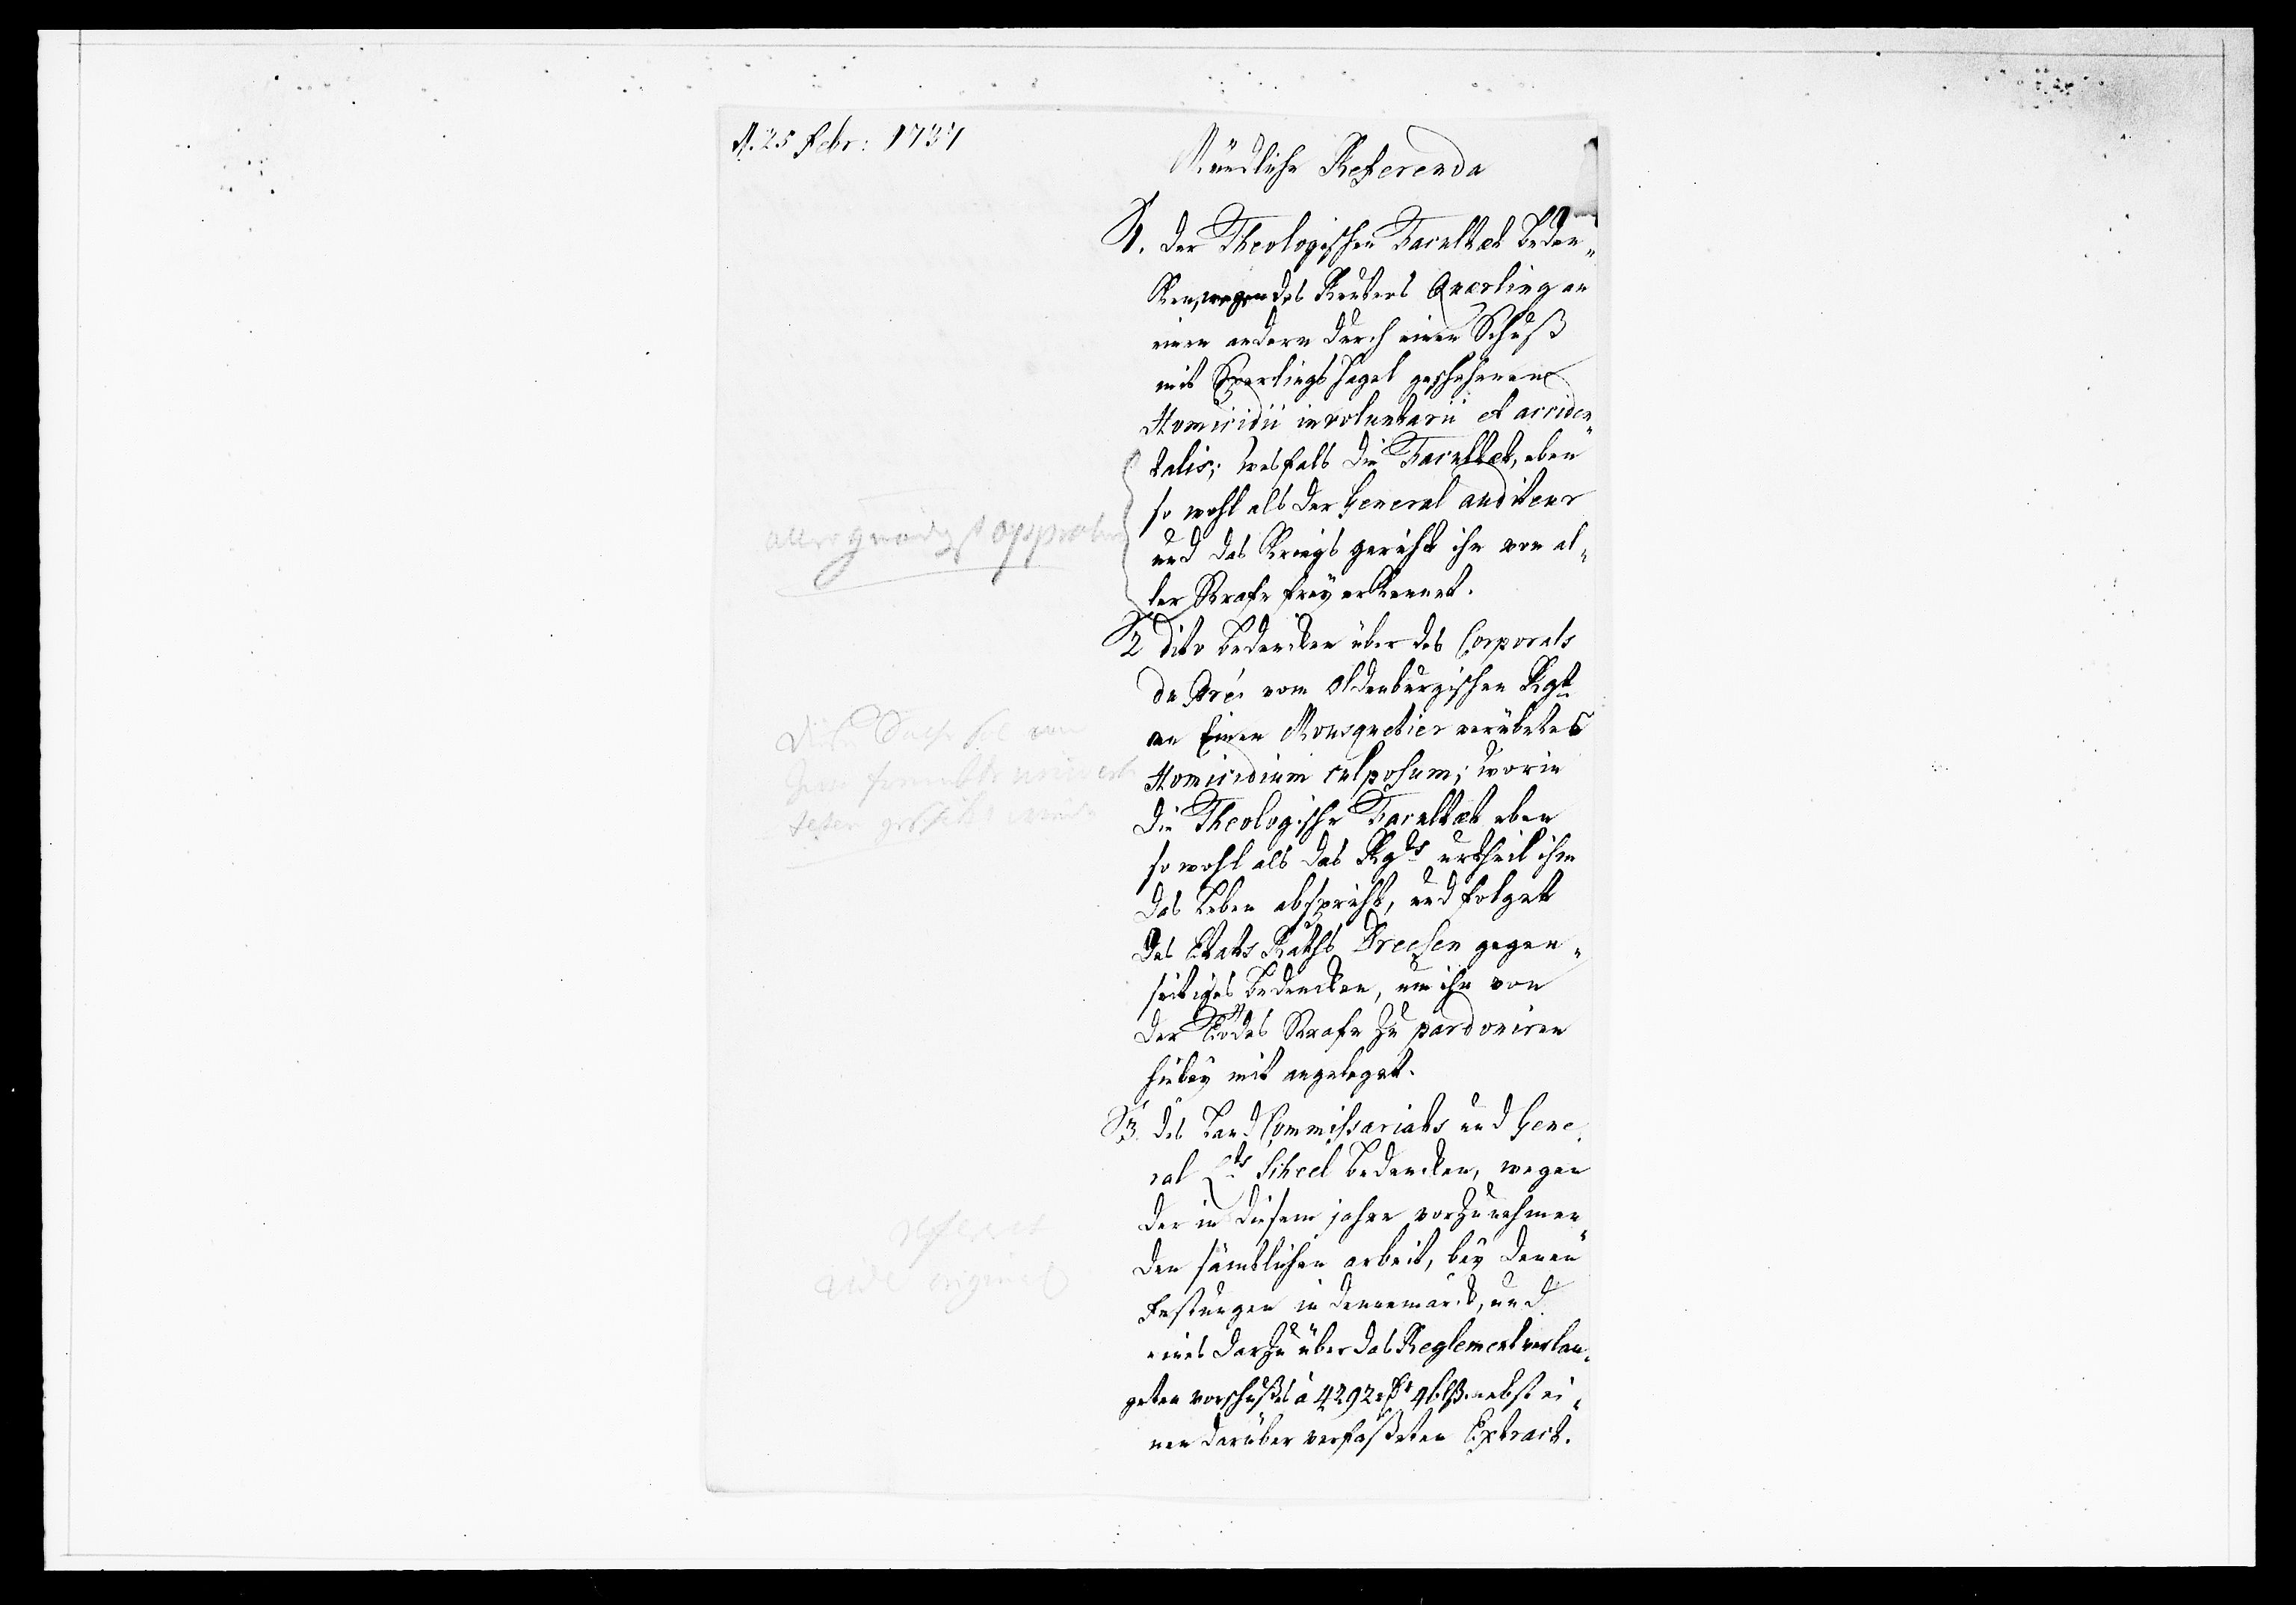 d. 25 Febr: 1737
Mündliche Referenda
1. der Theologischen Facultæt Beden„
cken, wegen des Reuters Qværling an
einen andern durch einen Schuß
mit Sperlings Hagel geschehenen
Homicidii involuntarii et acciden„
talis; wesfals die Facultæt, eben
so wohl als der General auditeur
und das Kriegs gericht ihn von al„
ler Strafe frey erkennet.
allergnädigst approbirt
2 dito Bedencken über des Corporals
de Pré vom Oldenburgischen Rgt
an Einen Mousquetier verübetes
Homicidium culposum; worin
die Theologische Facultæt eben
so wohl als das Rgts urtheil ihm
das Leben abspricht, und folget
des Etats Raths Dreesen gegen„
seitiges Bedencken, um ihn von
der Todes Strafe zu pardoniren
hiebey mit angeleget.
Diese Sache soll
3. des Land Commissariats und Gene„
ral Lts Scheel Bedencken, wegen
der in diesem jahre vorzunehmen„
den sämtlichen arbeit, bey denen
Festungen in Dennemarck, und
eines darzu über das Reglement verlan„
geten vorschußes à 4292 Rt 46 lß. nebst ei„
nen darüber verfaßeten Extract.
referirt
vide original